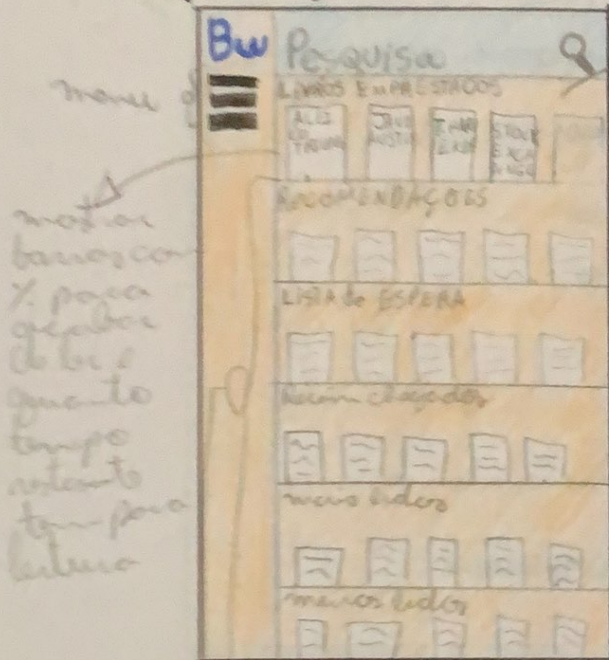 Bw Pesquisa
menu
LIVROS EMPRESTADOS
RECOMENDAÇÕES
LISTA de ESPERA
Recém chegados
mais lidos
menos lidos
mostrar
barras com
% para
acabar
de ler e
quanto
tempo
restante
tem para
leitura